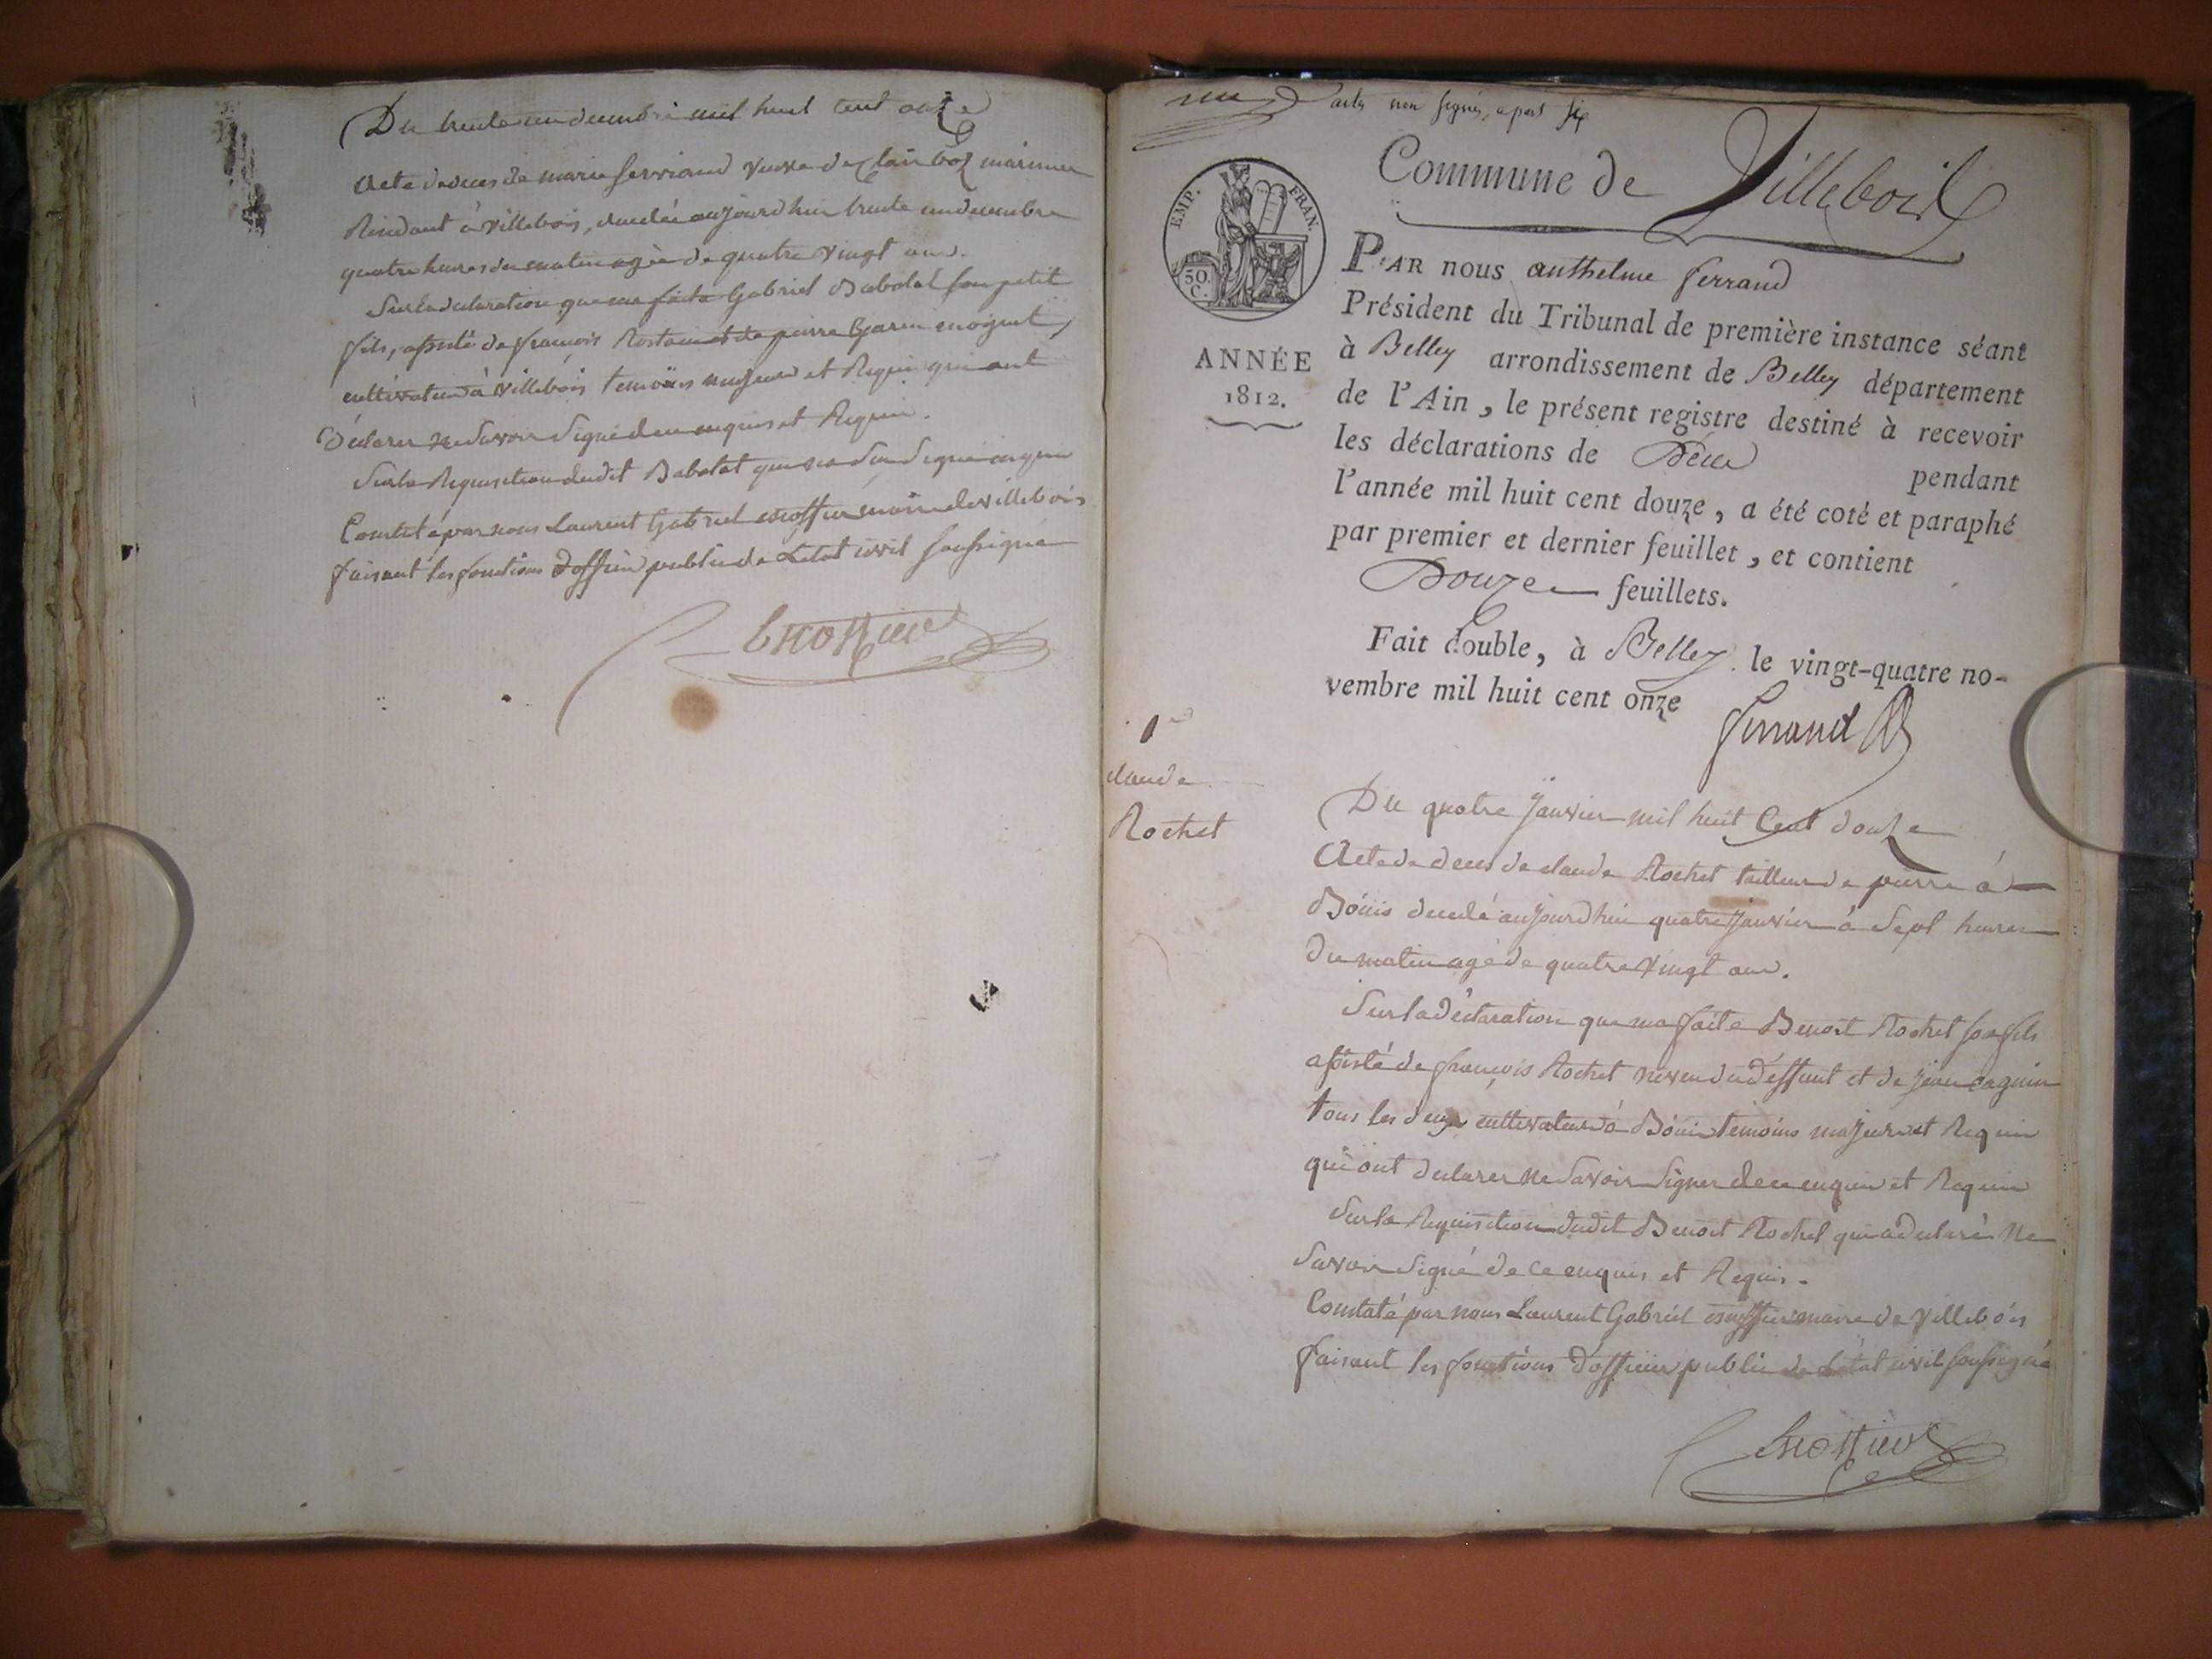 Du trente un decembre mil huit cent onze
Acte de deces de marie serviand veuve de Clair boz marinier
Residant à villebois, decedée aujourd'hui trente un decembre
quatre heures du matin agée de quatre vingt ans.
Sur la declaration que ma faite Gabriel Babolat son petit
fils, assisté de françois Rostain et de pierre Garin
cultivateurs à villebois temoins majeurs et Requis qui ont
déclarer ne Savoir Signé de ce enquis et Requis.
Sur la Requisition dudit Babolat
Constaté par nous Laurent Gabriel maire de villebois
faisant les fonctions d'officier public de Letat civil soussigné
actes non signés, a part
EMP. FRAN.
50.
C.
ANNÉE
1812.
Commune de Villebois
PAR nous anthelme ferrand
Président du Tribunal de première instance séant
à Belley arrondissement de Belley département
de l'Ain, le présent registre destiné à recevoir
les déclarations de Décès pendant
l'année mil huit cent douze, a été coté et paraphé
par premier et dernier feuillet, et contient
Douze feuillets.
Fait double, à Belley le vingt-quatre no-
vembre mil huit cent onze
ferrand
claude
Rochet
Du quatre Janvier mil huit Cent douze
Acte de deces de claude Rochet tailleur de pierre à
Bóüis decedé aujourd'hui quatre Janvier à Sept heures
du matin agé de quatre vingt ans.
Sur la déclaration que ma faite Benoit Rochet son fils
assisté de françois Rochet neveu du deffunt et de jean
tous les deux cultivateurs à Bóüis temoins majeurs et Requis
qui ont declarer ne Savoir Signer de ce enquis et Requis
Sur la Requisition dudit Benoit Rochet qui a declaré Ne
Savoir Signé de ce enquis et Requis.
Constaté par nous Laurent Gabriel maire de villebois
faisant les fonctions d'officier public de Létat civil soussigné